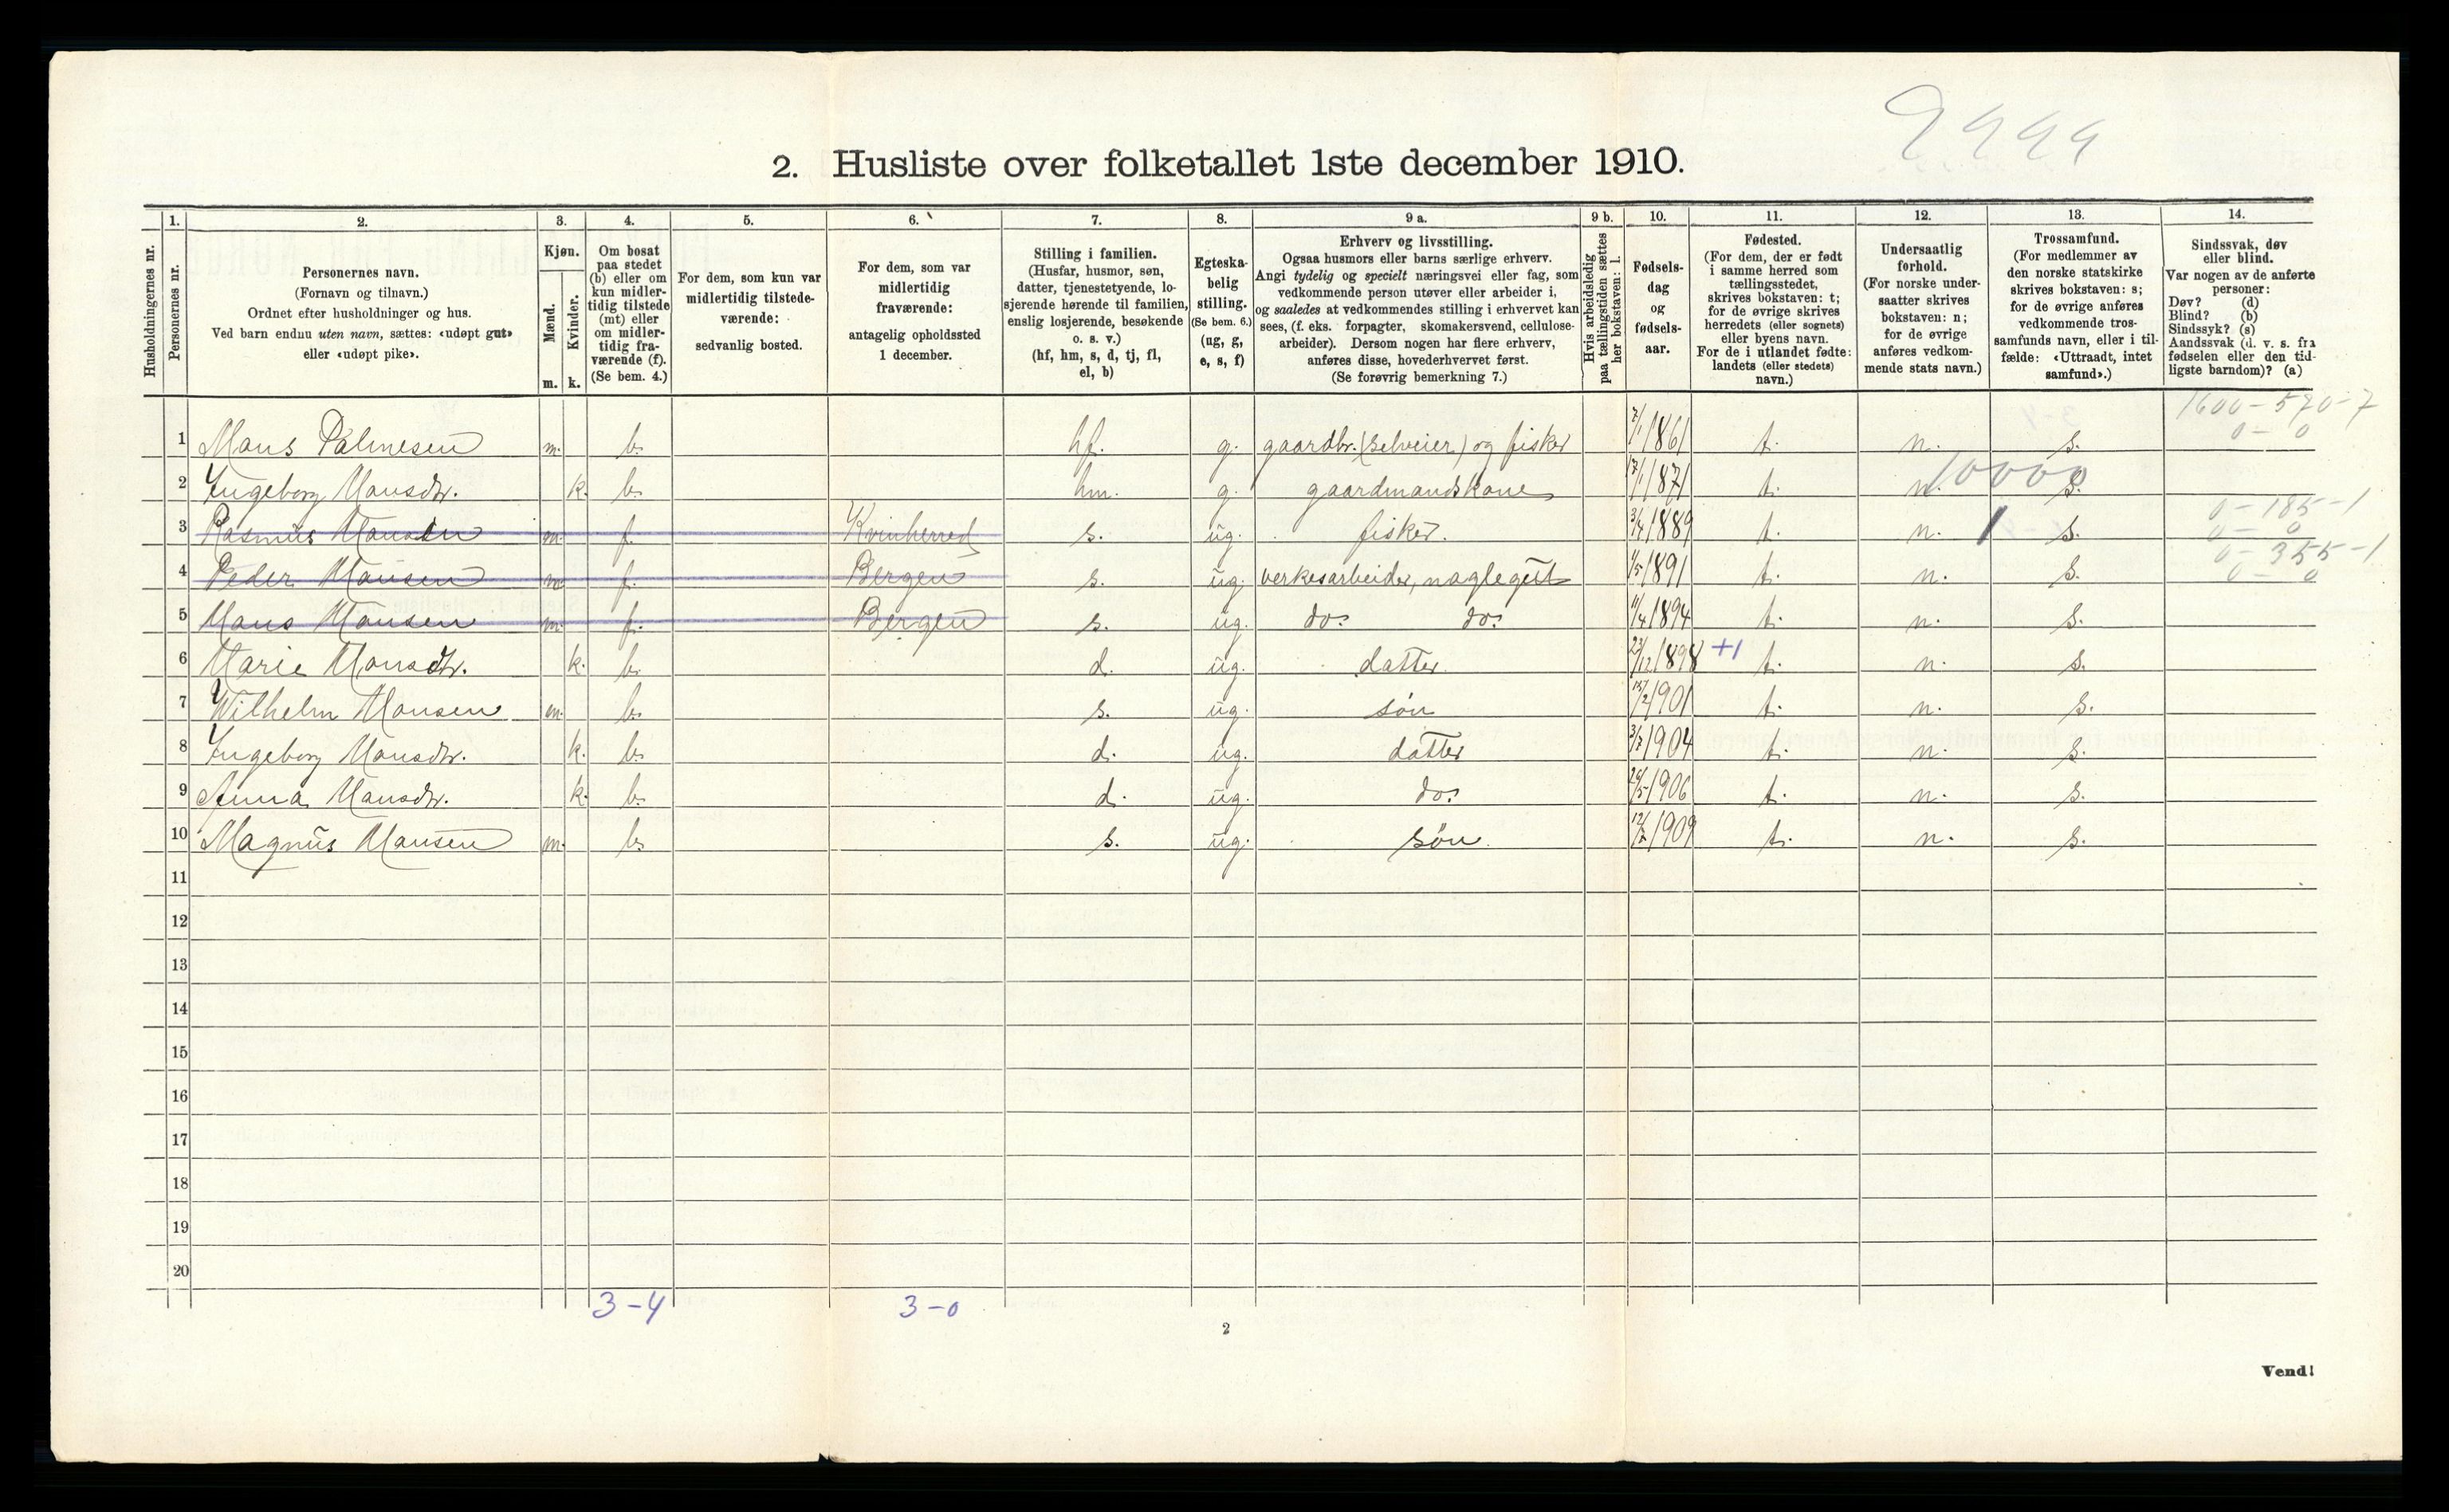 9999
2. Husliste over folketallet 1ste december 1910.
Husholdningernes nr.
1. Personernes nr.
2. Personernes navn.
(Fornavn og tilnavn.)
Ordnet efter husholdninger og hus.
Ved barn endnu uten navn, sættes: «udøpt gut»
eller «udøpt pike».
3. Kjøn.
Mænd. m.
Kvinder. k.
4. Om bosat
paa stedet
(b) eller om
kun midler-
tidig tilstede
(mt) eller
om midler-
tidig fra-
værende (f).
(Se bem. 4.)
5. For dem, som kun var
midlertidig tilstede-
værende:
sedvanlig bosted.
6. For dem, som var
midlertidig
fraværende:
antagelig opholdssted
1 december.
7. Stilling i familien.
(Husfar, husmor, søn,
datter, tjenestetyende, lo-
sjerende hørende til familien,
enslig losjerende, besøkende
o. s. v.)
(hf, hm, s, d, tj, fl,
el, b)
8. Egteska-
belig
stilling.
(Se bem. 6.)
(ug, g,
e, s, f)
9 a. Erhverv og livsstilling.
Ogsaa husmors eller barns særlige erhverv.
Angi tydelig og specielt næringsvei eller fag, som
vedkommende person utøver eller arbeider i,
og saaledes at vedkommendes stilling i erhvervet kan
sees, (f. eks. forpagter, skomakersvend, cellulose-
arbeider). Dersom nogen har flere erhverv,
anføres disse, hovederhvervet først.
(Se forøvrig bemerkning 7.)
9 b. Hvis arbeidsledig
paa tællingstiden sættes
her bokstaven: l.
10. Fødsels-
dag
og
fødsels-
aar.
11. Fødested.
(For dem, der er født
i samme herred som
tællingsstedet,
skrives bokstaven: t;
for de øvrige skrives
herredets (eller sognets)
eller byens navn.
For de i utlandet fødte:
landets (eller stedets)
navn.)
12. Undersaatlig
forhold.
(For norske under-
saatter skrives
bokstaven: n;
for de øvrige
anføres vedkom-
mende stats navn.)
13. Trossamfund.
(For medlemmer av
den norske statskirke
skrives bokstaven: s;
for de øvrige anføres
vedkommende tros-
samfunds navn, eller i til-
fælde: «Uttraadt, intet
samfund».)
14. Sindssvak, døv
eller blind.
Var nogen av de anførte
personer:
Døv? (d)
Blind? (b)
Sindssyk? (s)
Aandssvak (d. v. s. fra
fødselen eller den tid-
ligste barndom)? (a)
1600-570-7
0-0
1 Mons Palmesen m. b. hf. g. gaardbr. (selveier) og fisker 7/1 1861 t. n. s.
10000
2 Ingeborg Monsdtr. k. b. hm. g. gaardmandskone 17/1 1871 t. n. s.
0-185-1
0-0
3 Rasmus Monsen m. f. Kvinherred s. ug. fisker. 3/4 1889 t. n. s.
0-355-1
0-0
4 Peder Monsen m. f. Bergen s. ug. verkesarbeider, naglegut 1/5 1891 t. n. s.
5 Mons Monsen m. f. Bergen s. ug. do. do. 11/4 1894 t. n. s.
6 Marie Monsdtr. k. b. d. ug. datter 23/12 1898 +1 t. n. s.
7 Wilhelm Monsen m. b. s. ug. søn 15/2 1901 t. n. s.
8 Ingeborg Monsdtr. k. b. d. ug. datter 3/7 1904 t. n. s.
9 Anna Monsdtr. k. b. d. ug. do. 26/5 1906 t. n. s.
10 Magnus Monsen m. b. s. ug. søn 12/7 1909 t. n. s.
11
12
13
14
15
16
17
18
19
20
3-4 3-0
2
Vend!